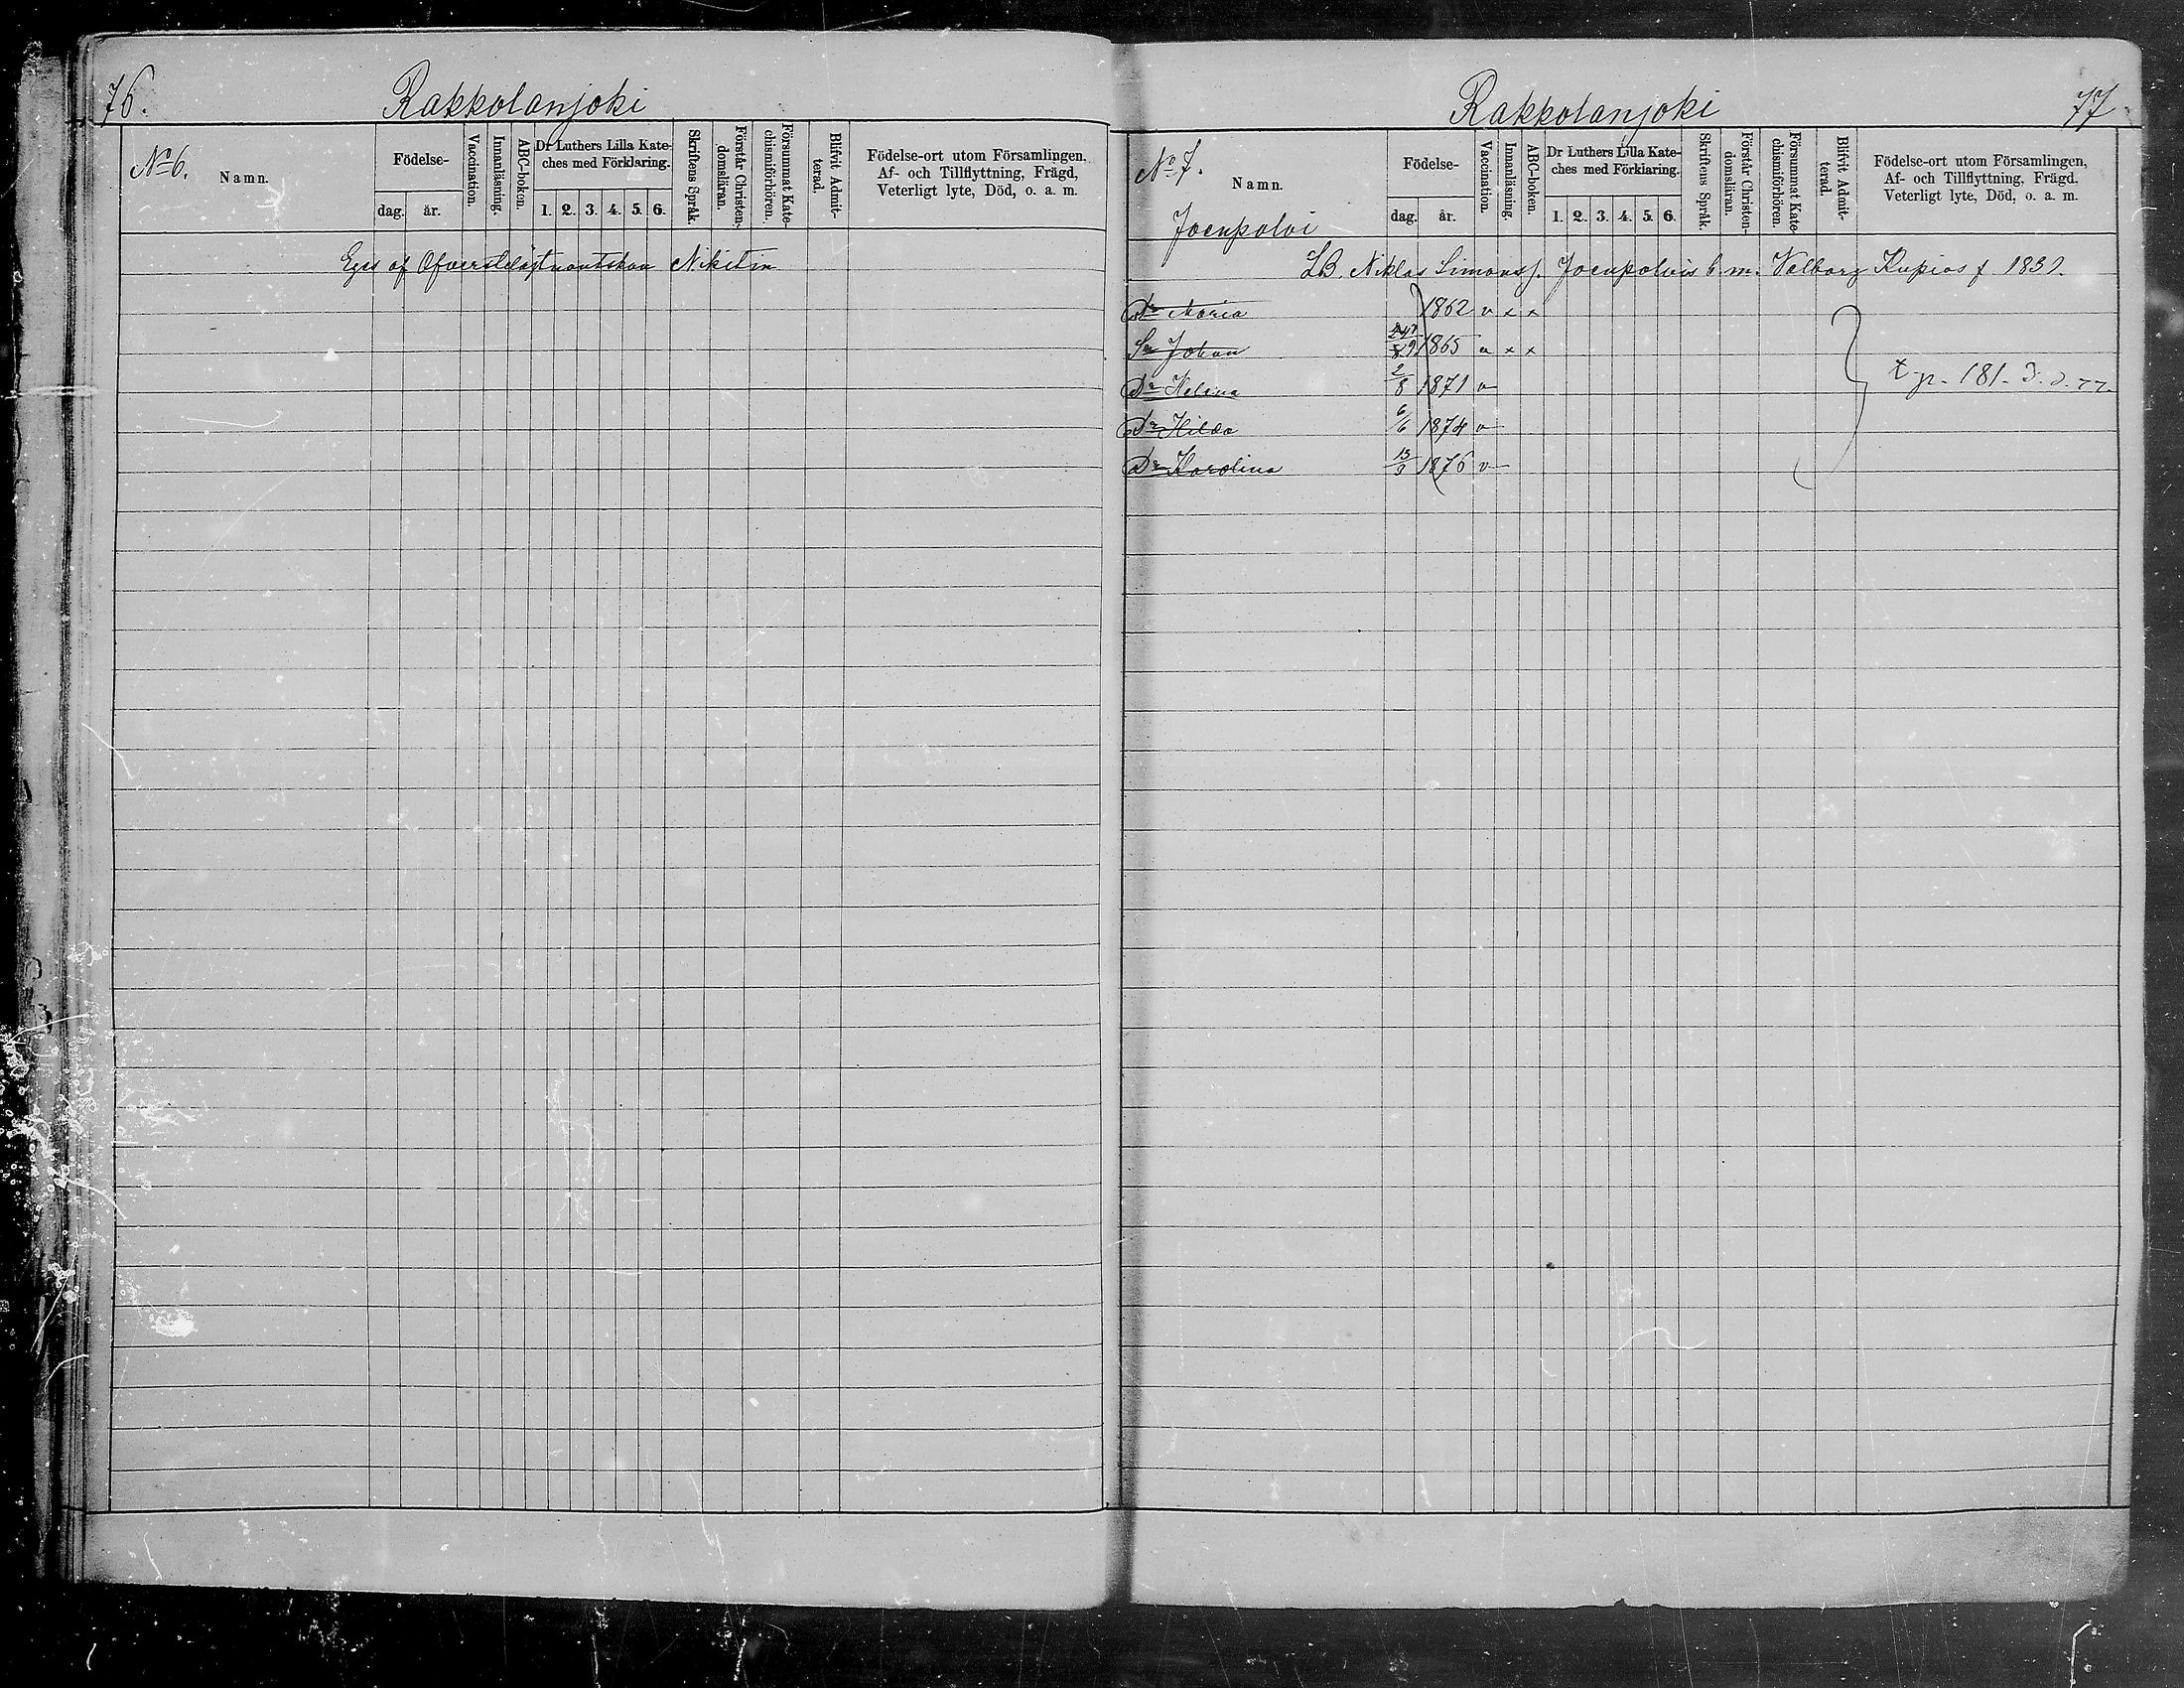 76.
Rakkolanjoki
No 6.
Namn.
Födelse-
dag.
år.
Vaccination.
Innanläsning.
ABC-boken.
Dr Luthers Lilla Kate-
ches med Förklaring.
1. 2. 3. 4. 5. 6.
Skriftens Språk.
Förstår Christen-
domsläran.
Försummat Kate-
chismiförhören.
Blifvit Admit-
terad.
Födelse-ort utom Församlingen,
Af- och Tillflyttning, Frägd,
Veterligt lyte, Död, o. a. m.
Eges af Öfverstelöjtnantskan Nikitin
Rakkolanjoki
77.
No 7.
Namn.
Joenpolvi
Födelse-
dag.
år.
Vaccination.
Innanläsning.
ABC-boken.
Dr Luthers Lilla Kate-
ches med Förklaring.
1. 2. 3. 4. 5. 6.
Skriftens Språk.
Förstår Christen-
domsläran.
Försummat Kate-
chismiförhören.
Blifvit Admit-
terad.
Födelse-ort utom Församlingen,
Af- och Tillflyttning, Frägd.
Veterligt lyte, Död, o. a. m.
LB. Niklas Simonss. Joenpolvis b. m. Valborg Kupias f. 1831.
Dr Maria 1862 v x x
Sn Johan 1865 v x x
Dr Helena 2/8 1871 v
t. p. 181
Dr Hilda 6/6 1874 v
Dr Karolina 13/9 1876 v